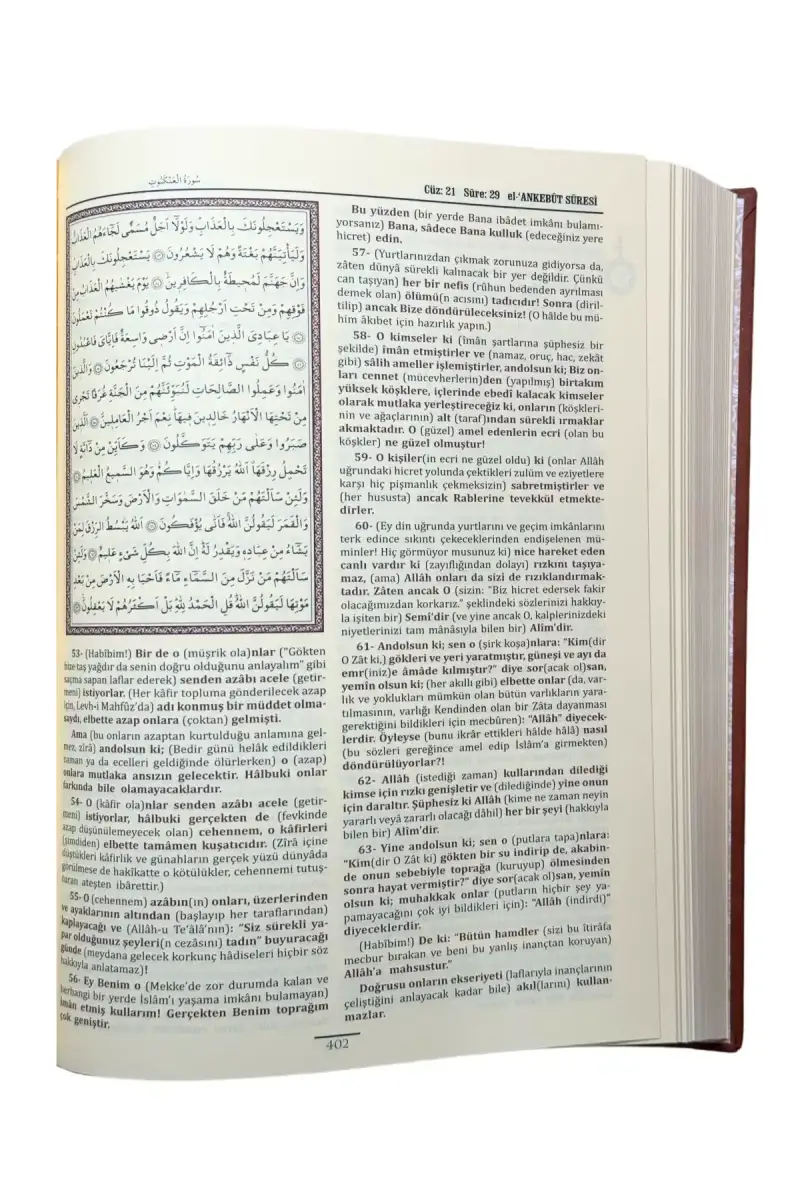 سُورَةُ الْعَنْكَبُوتِ
Cüz: 21 Sûre: 29 el-‘ANKEBÛT SÛRESİ
وَيَسْتَعْجِلُونَكَ بِالْعَذَابِ وَلَوْلَا اَجَلٌ مُسَمًّى لَجَاءَهُمُ الْعَذَابُ
وَلَيَأْتِيَنَّهُمْ بَغْتَةً وَهُمْ لَا يَشْعُرُونَ ۞ يَسْتَعْجِلُونَكَ بِالْعَذَابِ
وَاِنَّ جَهَنَّمَ لَمُحِيطَةٌ بِالْكَافِرِينَ ۞ يَوْمَ يَغْشٰيهُمُ الْعَذَابُ مِنْ
فَوْقِهِمْ وَمِنْ تَحْتِ اَرْجُلِهِمْ وَيَقُولُ ذُوقُوا مَا كُنْتُمْ تَعْمَلُونَ
۞ يَا عِبَادِيَ الَّذِينَ اٰمَنُوا اِنَّ اَرْضِى وَاسِعَةٌ فَاِيَّايَ فَاعْبُدُونِ
۞ كُلُّ نَفْسٍ ذَائِقَةُ الْمَوْتِ ثُمَّ اِلَيْنَا تُرْجَعُونَ ۞ وَالَّذِينَ
اٰمَنُوا وَعَمِلُوا الصَّالِحَاتِ لَنُبَوِّئَنَّهُمْ مِنَ الْجَنَّةِ غُرَفًا تَجْرِى
مِنْ تَحْتِهَا الْاَنْهَارُ خَالِدِينَ فِيهَا نِعْمَ اَجْرُ الْعَامِلِينَ ۞ الَّذِينَ
صَبَرُوا وَعَلٰى رَبِّهِمْ يَتَوَكَّلُونَ ۞ وَكَاَيِّنْ مِنْ دَابَّةٍ لَا
تَحْمِلُ رِزْقَهَا اَللّٰهُ يَرْزُقُهَا وَاِيَّاكُمْ وَهُوَ السَّمِيعُ الْعَلِيمُ ۞
وَلَئِنْ سَاَلْتَهُمْ مَنْ خَلَقَ السَّمٰوَاتِ وَالْاَرْضَ وَسَخَّرَ الشَّمْسَ
وَالْقَمَرَ لَيَقُولُنَّ اللّٰهُ فَاَنّٰى يُؤْفَكُونَ ۞ اَللّٰهُ يَبْسُطُ الرِّزْقَ لِمَنْ
يَشَاءُ مِنْ عِبَادِهِ وَيَقْدِرُ لَهُ اِنَّ اللّٰهَ بِكُلِّ شَىْءٍ عَلِيمٌ ۞ وَلَئِنْ
سَاَلْتَهُمْ مَنْ نَزَّلَ مِنَ السَّمَاءِ مَاءً فَاَحْيَا بِهِ الْاَرْضَ مِنْ بَعْدِ
مَوْتِهَا لَيَقُولُنَّ اللّٰهُ قُلِ الْحَمْدُ لِلّٰهِ بَلْ اَكْثَرُهُمْ لَا يَعْقِلُونَ ۞
53- (Habîbim!) Bir de o (müşrik ola)nlar ("Gökten
bize taş yağdır da senin doğru olduğunu anlayalım" gibi
saçma sapan laflar ederek) senden azâbı acele (getir-
meni) istiyorlar. (Her kâfir topluma gönderilecek azap
için, Levh-i Mahfûz'da) adı konmuş bir müddet olma-
saydı, elbette azap onlara (çoktan) gelmişti.
Ama (bu onların azaptan kurtulduğu anlamına gel-
mez, zîrâ) andolsun ki; (Bedir günü helâk edildikleri
zaman ya da ecelleri geldiğinde ölürlerken) o (azap)
onlara mutlaka ansızın gelecektir. Hâlbuki onlar
farkında bile olamayacaklardır.
54- O (kâfir ola)nlar senden azâbı acele (getir-
meni) istiyorlar, hâlbuki gerçekten de (fevkinde
azap düşünülemeyecek olan) cehennem, o kâfirleri
(şimdiden) elbette tamâmen kuşatıcıdır. (Zîrâ içine
düştükleri kâfirlik ve günahların gerçek yüzü dünyâda
görülmese de hakîkatte o kötülükler, cehennemi tutuş-
turan ateşten ibârettir.)
55- O (cehennem) azâbın(ın) onları, üzerlerinden
ve ayaklarının altından (başlayıp her taraflarından)
kaplayacağı ve (Allâh-u Te‘âlâ'nın): "Siz sürekli ya-
par olduğunuz şeyleri(n cezâsını) tadın" buyuracağı
günde (meydana gelecek korkunç hâdiseleri hiçbir söz
hakkıyla anlatamaz)!
56- Ey Benim o (Mekke'de zor durumda kalan ve
herhangi bir yerde İslâm'ı yaşama imkânı bulamayan)
îmân etmiş kullarım! Gerçekten Benim toprağım
çok geniştir.
Bu yüzden (bir yerde Bana ibâdet imkânı bulamı-
yorsanız) Bana, sâdece Bana kulluk (edeceğiniz yere
hicret) edin.
57- (Yurtlarınızdan çıkmak zorunuza gidiyorsa da,
zâten dünyâ sürekli kalınacak bir yer değildir. Çünkü
can taşıyan) her bir nefis (rûhun bedenden ayrılması
demek olan) ölümü(n acısını) tadıcıdır! Sonra (diril-
tilip) ancak Bize döndürüleceksiniz! (O hâlde bu mü-
him âkıbet için hazırlık yapın.)
58- O kimseler ki (îmân şartlarına şüphesiz bir
şekilde) îmân etmiştirler ve (namaz, oruç, hac, zekât
gibi) sâlih ameller işlemiştirler, andolsun ki; Biz on-
ları cennet (mücevherlerin)den (yapılmış) birtakım
yüksek köşklere, içlerinde ebedî kalacak kimseler
olarak mutlaka yerleştireceğiz ki, onların (köşkleri-
nin ve ağaçlarının) alt (taraf)ından sürekli ırmaklar
akmaktadır. O (güzel) amel edenlerin ecri (olan bu
köşkler) ne güzel olmuştur!
59- O kişiler(in ecri ne güzel oldu) ki (onlar Allâh
uğrundaki hicret yolunda çektikleri zulüm ve eziyetlere
karşı hiç pişmanlık çekmeksizin) sabretmiştirler ve
(her hususta) ancak Rablerine tevekkül etmekte-
dirler.
60- (Ey din uğrunda yurtlarını ve geçim imkânlarını
terk edince sıkıntı çekeceklerinden endişelenen mü-
minler! Hiç görmüyor musunuz ki) nice hareket eden
canlı vardır ki (zayıflığından dolayı) rızkını taşıya-
maz, (ama) Allâh onları da sizi de rızıklandırmak-
tadır. Zâten ancak O (sizin: "Biz hicret edersek fakir
olacağımızdan korkarız." şeklindeki sözlerinizi hakkıy-
la işiten bir) Semî‘dir (ve yine ancak O, kalplerinizdeki
niyetlerinizi tam mânâsıyla bilen bir) Alîm'dir.
61- Andolsun ki; sen o (şirk koşa)nlara: "Kim(dir
O Zât ki,) gökleri ve yeri yaratmıştır, güneşi ve ayı da
emr(iniz)e âmâde kılmıştır?" diye sor(acak ol)san,
yemin olsun ki; (her akıllı gibi) elbette onlar (da, var-
lık ve yoklukları mümkün olan bütün varlıkların yara-
tılmasının, varlığı Kendinden olan bir Zâta dayanması
gerektiğini bildikleri için mecbûren): "Allâh" diyecek-
lerdir. Öyleyse (bunu ikrâr ettikleri hâlde hâlâ) nasıl
(bu sözleri gereğince amel edip İslâm'a girmekten)
döndürülüyorlar?!
62- Allâh (istediği zaman) kullarından dilediği
kimse için rızkı genişletir ve (dilediğinde) yine onun
için daraltır. Şüphesiz ki Allâh (kime ne zaman neyin
yararlı veyâ zararlı olacağı dâhil) her bir şeyi (hakkıyla
bilen bir) Alîm'dir.
63- Yine andolsun ki; sen o (putlara tapa)nlara:
"Kim(dir O Zât ki) gökten bir su indirip de, akabin-
de onun sebebiyle toprağa (kuruyup) ölmesinden
sonra hayat vermiştir?" diye sor(acak ol)san, yemin
olsun ki; muhakkak onlar (putların hiçbir şey ya-
pamayacağını çok iyi bildikleri için): "Allâh (indirdi)"
diyeceklerdir.
(Habîbim!) De ki: "Bütün hamdler (sizi bu îtirâfa
mecbur bırakan ve beni bu yanlış inançtan koruyan)
Allâh'a mahsustur."
Doğrusu onların ekseriyeti (laflarıyla inançlarının
çeliştiğini anlayacak kadar bile) akıl(larını) kullan-
mazlar.
402